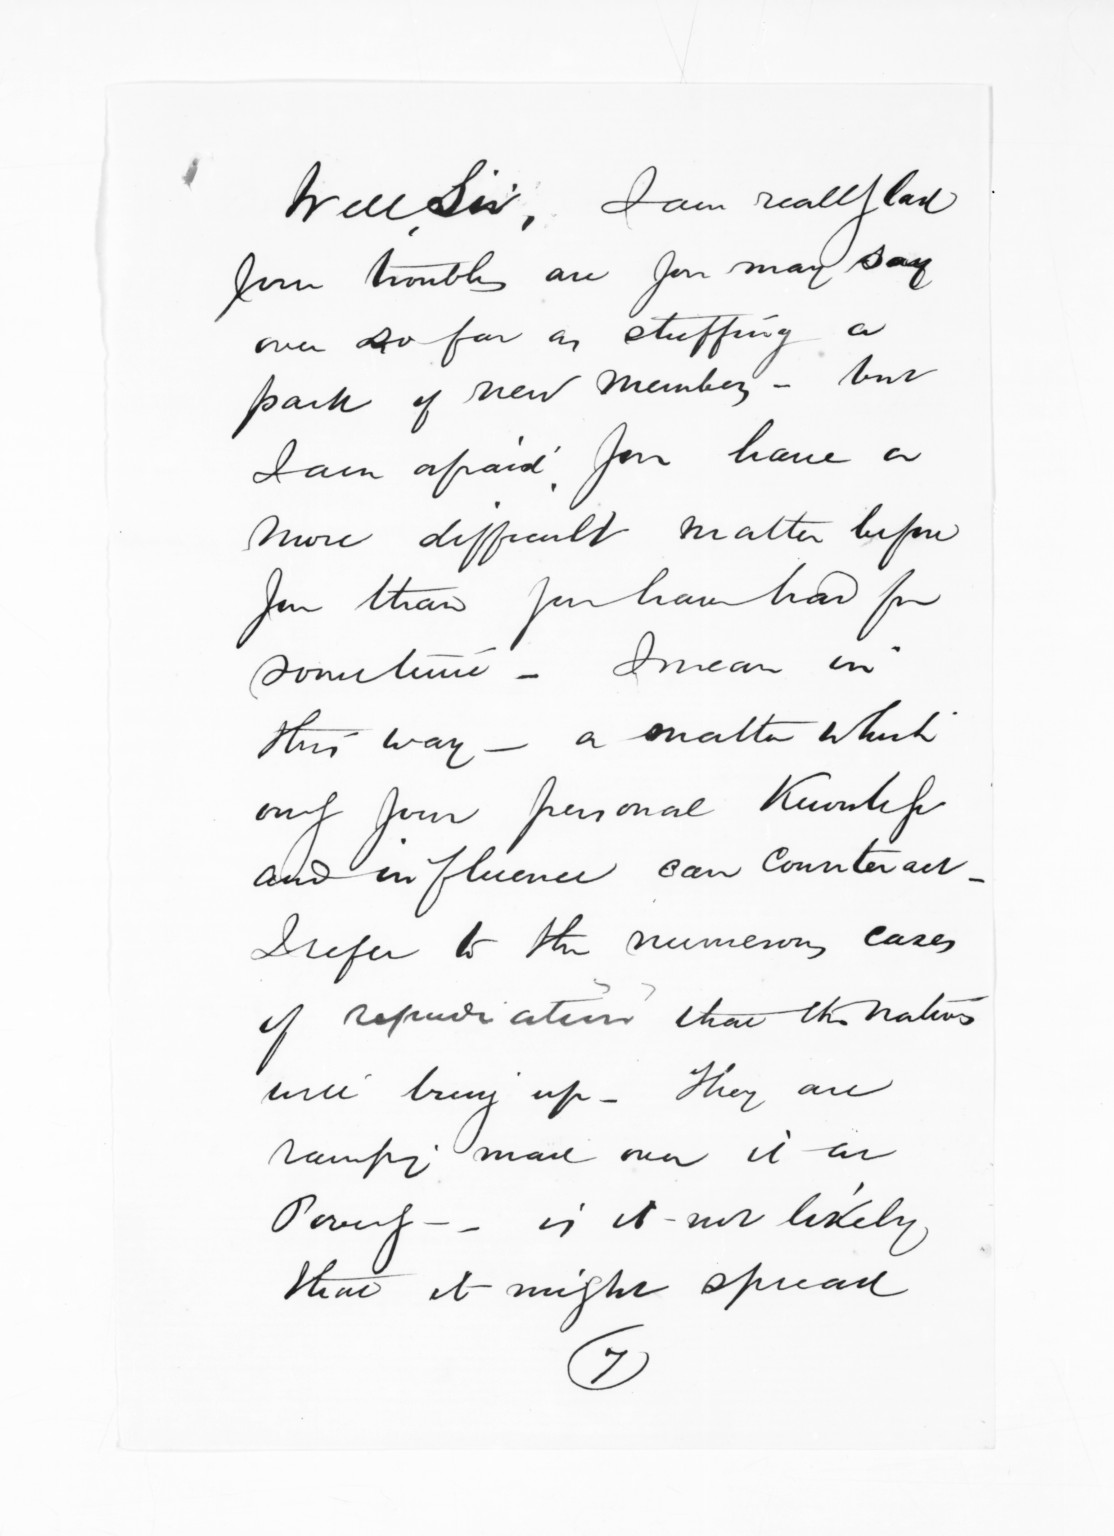 Well, Sir, I am really glad
your troubles are you may say
over so far as stuffing a
pack of new members - but
I am afraid you have a
more difficult matter before
you than you have had for
sometime - I mean in
this way - a matter which
only your personal Knowledge
and influence can counteract -
I refer to the numerous cases
of repudiation that the natives
will bring up - They are
ramping mad over it at
Poverty - - is it not likely
that it might spread
7